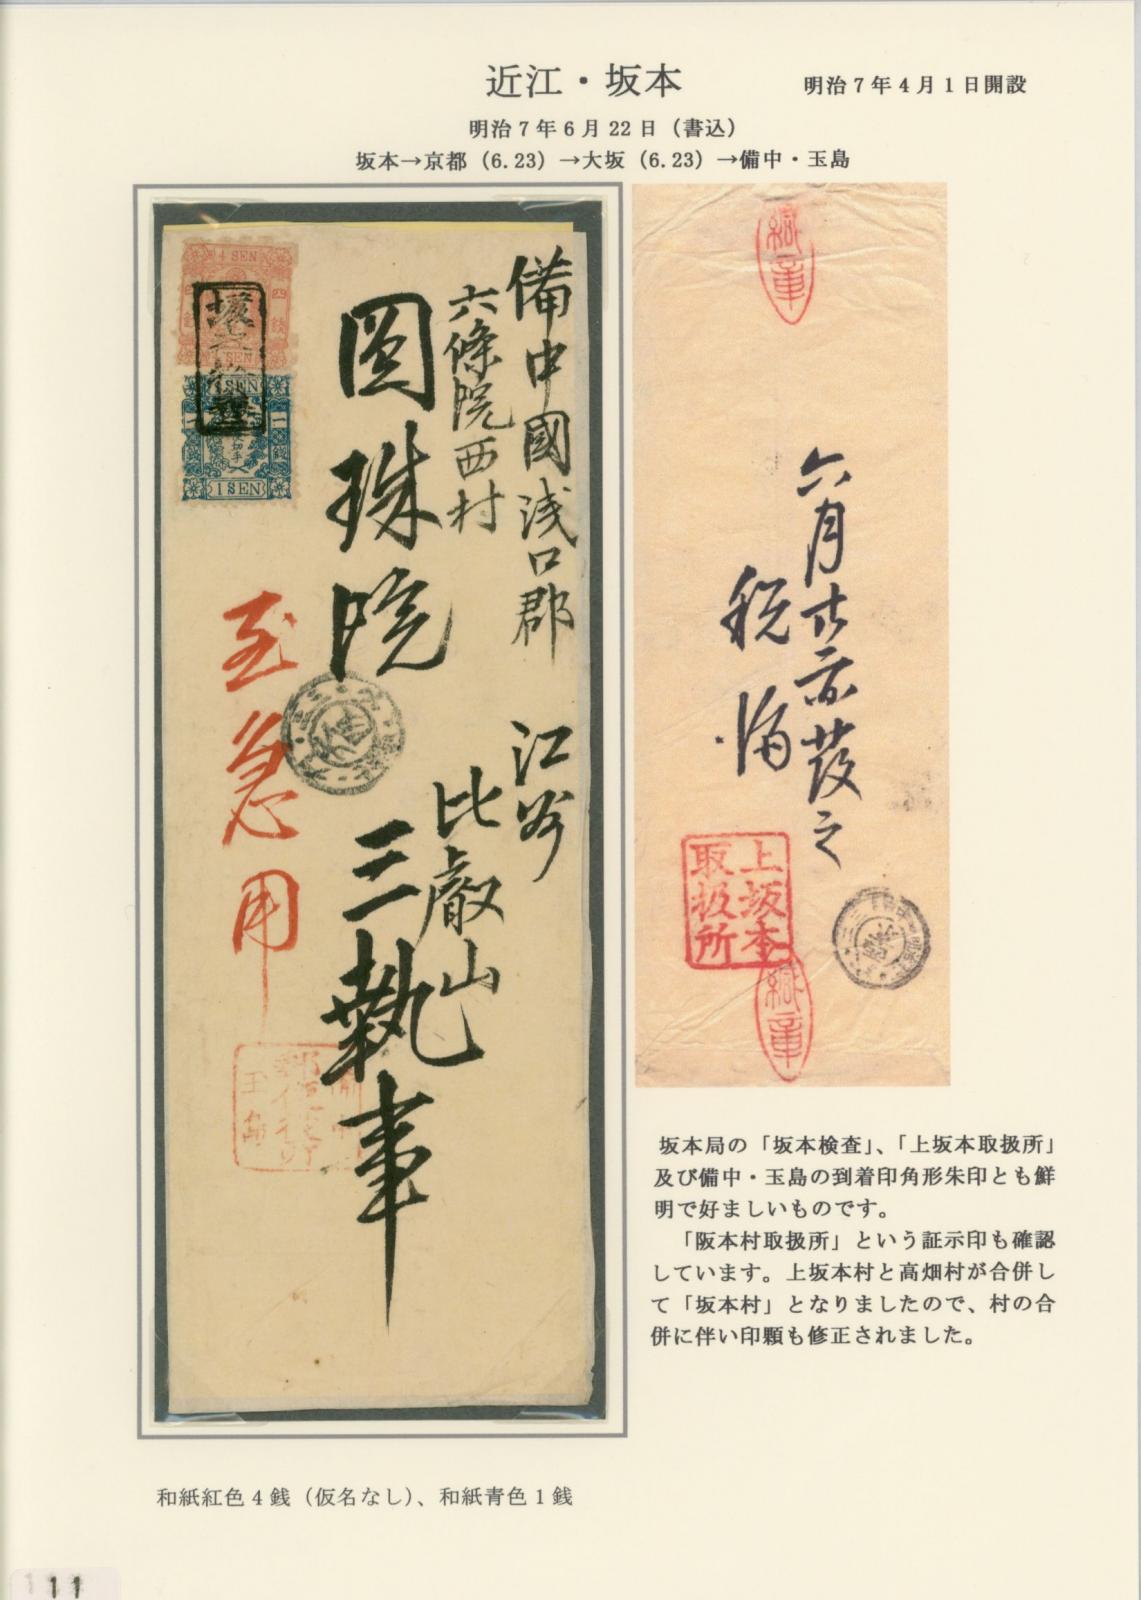 近江・坂本
明治7年4月1日開設
明治7年6月22日（書込）
坂本→京都（6.23）→大坂（6.23）→備中・玉島
4 SEN
四
銭
SEN
1 SEN
一
銭
切手
1 SEN
備中國浅口郡
六條院西村
圓珠院
江州
比叡山
三執事
至急用
玉島
緘章
六月廿二日発之
税済
上坂本
取扱所
緘章
坂本局の「坂本検査」、「上坂本取扱所」
及び備中・玉島の到着印角形朱印とも鮮
明で好ましいものです。
「阪本村取扱所」という証示印も確認
しています。上坂本村と高畑村が合併し
て「坂本村」となりましたので、村の合
併に伴い印顆も修正されました。
和紙紅色4銭（仮名なし）、和紙青色1銭
11